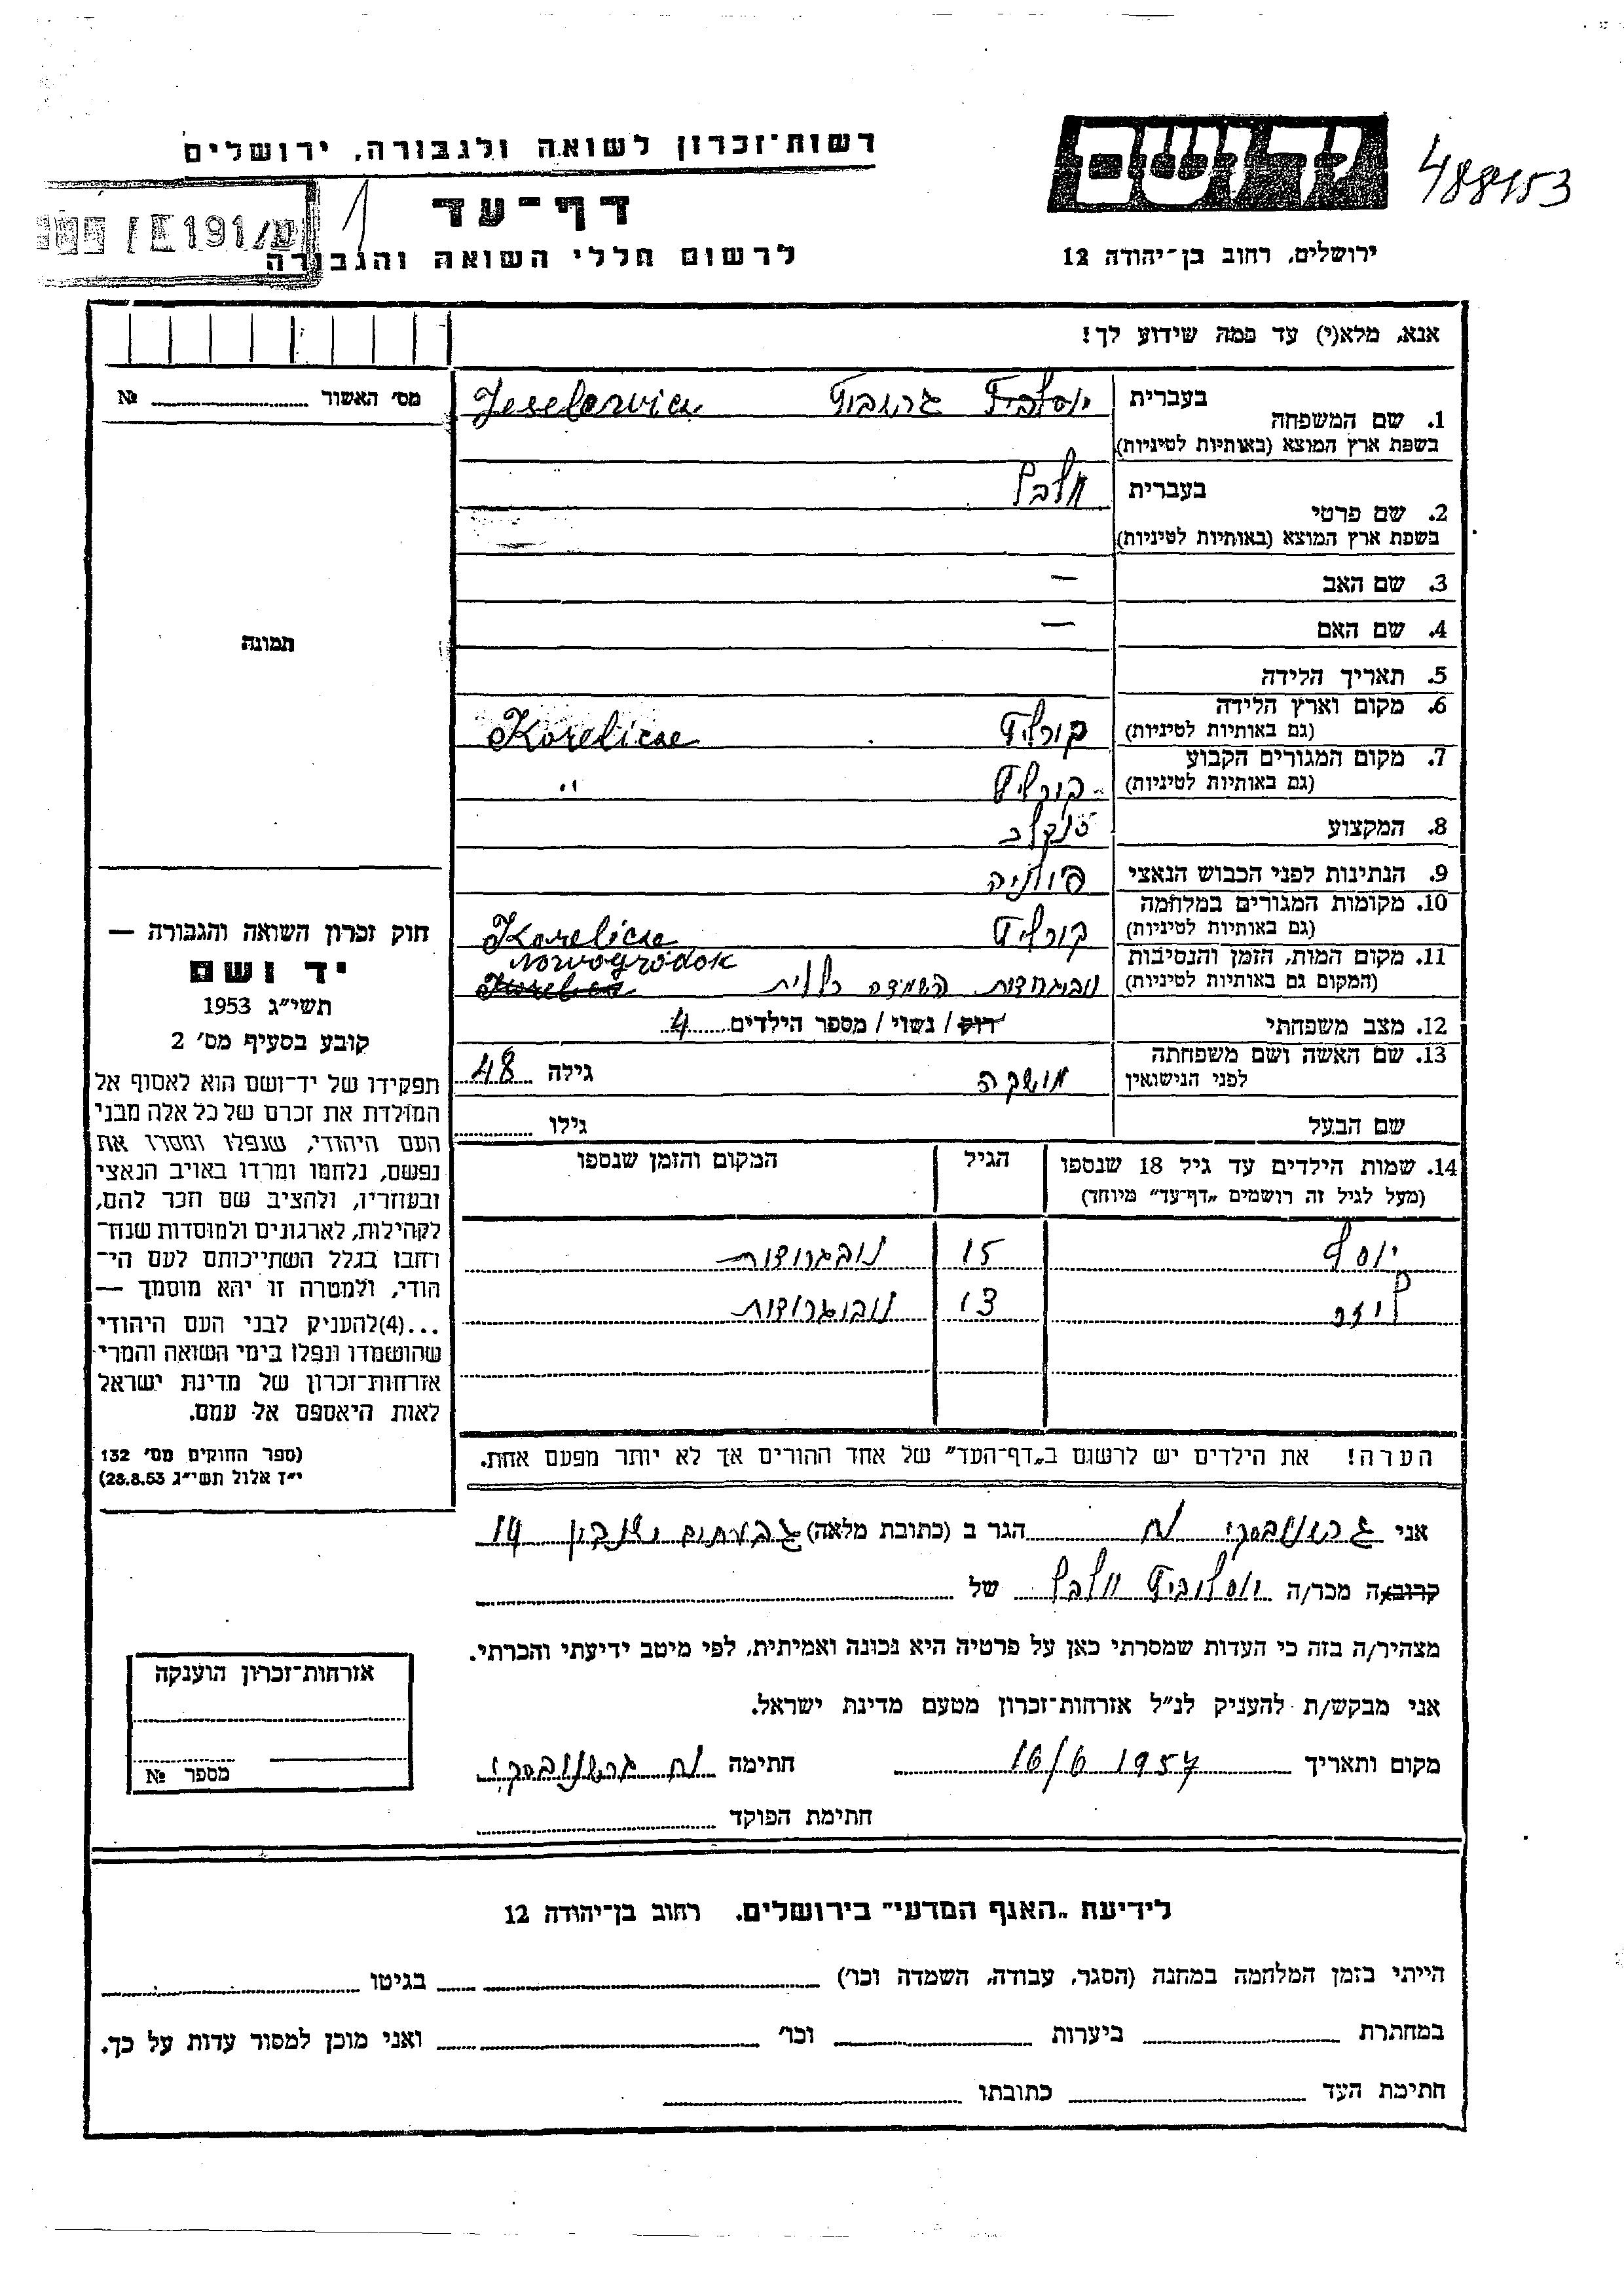 רשות־זכרון לשואה ולגבורה, ירושלים
יד ושם
488153
דף־עד
1
E191/
לרשום חללי השואה והגבורה
ירושלים, רחוב בן־יהודה 12
אנא, מלא(י) עד כמה שידוע לך!
מס' האשור № 
1. שם המשפחה
בעברית
Jeselewicz
בשפת ארץ המוצא (באותיות לטיניות)
2. שם פרטי
בעברית
בשפת ארץ המוצא (באותיות לטיניות)
3. שם האב —
4. שם האם —
תמונה
5. תאריך הלידה
6. מקום ארץ הלידה
(גם באותיות לטיניות) קורליץ Korelicze
7. מקום המגורים הקבוע
(גם באותיות לטיניות) קורליץ "
8. המקצוע
9. הנתינות לפני הכבוש הנאצי פולניה
10. מקומות המגורים במלחמה
(גם באותיות לטיניות) קורליץ Korelicze
11. מקום המות, הזמן והנסיבות Nowogródok
(המקום גם באותיות לטיניות) נובוגרודוק השמדה כללית
12. מצב משפחתי רוק / נשוי / מספר הילדים 4
13. שם האשה ושם משפחתה
לפני הנישואין מושקה גילה 48
שם הבעל גילו
14. שמות הילדים עד גיל 18 שנספו הגיל המקום והזמן שנספו
(מעל לגיל זה רושמים "דף־עד" מיוחד)
יוסף 15 נובגרודוק
13 נובוגרודוק
הערה! את הילדים יש לרשום ב"דף־העד" של אחד ההורים אך לא יותר מפעם אחת.
חוק זכרון השואה והגבורה —
יד ושם
תשי"ג 1953
קובע בסעיף מס' 2
תפקידו של יד־ושם הוא לאסוף אל
המולדת את זכרם של כל אלה מבני
העם היהודי, שנפלו ומסרו את
נפשם, נלחמו ומרדו באויב הנאצי
ובעוזריו, ולהציב שם וזכר להם,
לקהילות, לארגונים ולמוסדות שנח־
רבו בגלל השתייכותם לעם הי־
הודי, ולמטרה זו יהא מוסמך —
...(4) להעניק לבני העם היהודי
שהושמדו ונפלו בימי השואה והמרי
אזרחות־זכרון של מדינת ישראל
לאות היאספם אל עמם.
(ספר החוקים מס' 132
י"ז אלול תשי"ג 28.8.53)
אני הגר ב (כתובת מלאה) גבעתיים 14
קרובה מכר/ה של
מצהיר/ה בזה כי העדות שמסרתי כאן על פרטיה היא נכונה ואמיתית, לפי מיטב ידיעתי והכרתי.
אני מבקש/ת להעניק לנ"ל אזרחות־זכרון מטעם מדינת ישראל.
מקום ותאריך 16/6 1957 חתימה
חתימת הפוקד
אזרחות־זכרון הוענקה
מספר №
לידיעת "האגף המדעי" בירושלים, רחוב בן־יהודה 12
הייתי בזמן המלחמה במחנה (הסגר, עבודה, השמדה וכו') בגיטו
במחתרת ביערות וכו' ואני מוכן למסור עדות על כך.
חתימת העד כתובתו